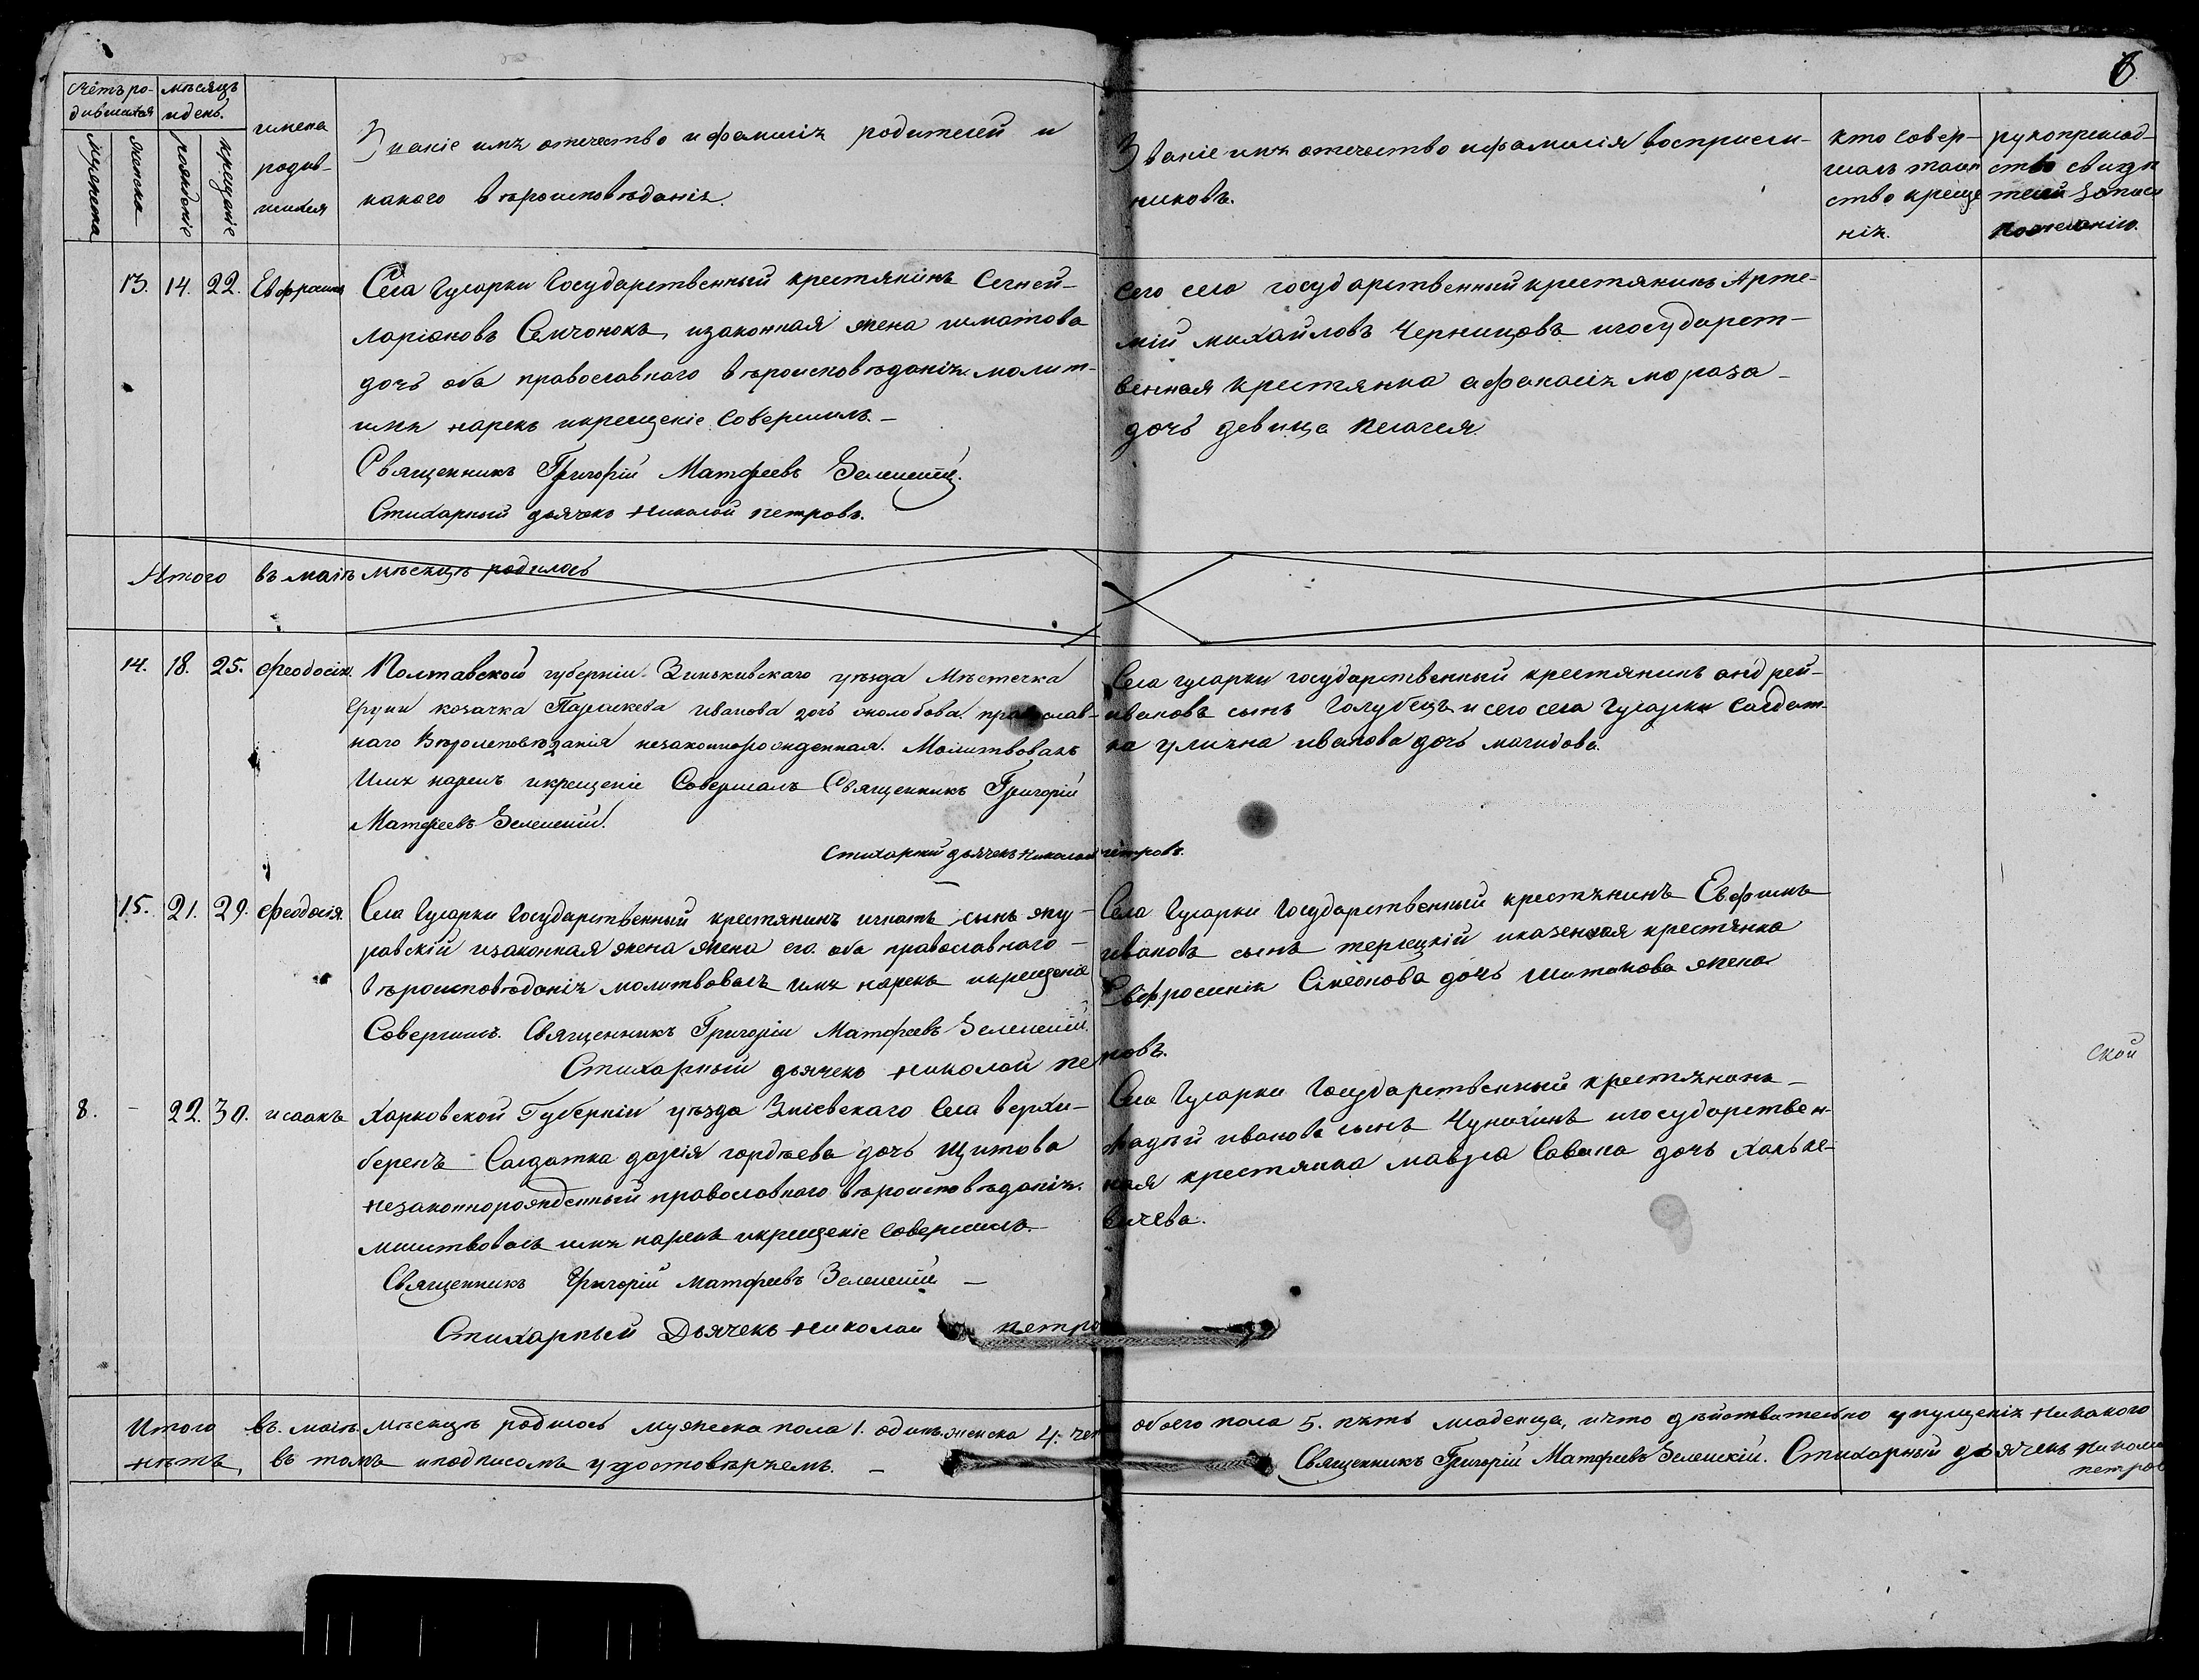 6
Счётъ ро-
дившихся
мѣсяцъ
и день.
мужеска
женска
рожденіе
крещеніе
имена
родив-
шихся
Званіе имя отечество и фамилія родителей и
какого вѣроисповѣданія.
Званіе имя отечество и фамилія восприем-
никовъ.
кто совер-
шалъ таин
ство креще
нія.
рукоприклад-
ство свидѣ
телей записи
по желанію.
13. 14. 22. Села Гусарки Государственный крестянинъ
Ларіоновъ законная жена
дочь оба православнаго вѣроисповѣданія. молит-
имя нарекъ икрещеніе Совершилъ.
Священникъ Григорій Матфеевъ
Стихарный дьячекъ Николай петровъ.
Сего села государственный крестянинъ Арте-
мій михайловъ Черницовъ игосударст-
венная крестянка афанасія мороза
дочь девица пелагея.
Итого въ маіѣ мѣсяцѣ родилось
14. 18. 25. Феодосія. Полтавской губерніи Зиньковскаго уѣзда Мѣстечка
Груни козачка Параскева иванова дочь православ-
наго Вѣроисповѣданія незаконнорожденная. Молитвовалъ
Имя нарекъ икрещеніе Совершалъ Священникъ Григорій
Матфеевъ
Стихарный дьячекъ Николай петровъ.
Села гусарки государственный крестянинъ андрей-
ивановъ сынъ Голубецъ и сего села Гусарки Салдат-
ка иванова дочь
15. 21. 29. Феодосія. Села Гусарки Государственный крестянинъ игнатъ сынъ яку-
ровскій изаконная жена жена его. оба православнаго
вѣроисповѣданія молитвовалъ имя нарекъ икрещеніе
Совершилъ. Священникъ Григорій Матфеевъ
Стихарный дьячекъ Николай
Села Гусарки Государственный крестянинъ Евфимъ
ивановъ сынъ терлецкій иказенная крестянка
Евфросинія Симеонова дочь жена
ской
8. - 22. 30. исаакъ Харковской Губерніи уѣзда Зміевскаго Села верхи-
берекъ Салдатка дарія гордѣева дочь Щитова
незаконнорожденный православнаго вѣроисповѣданія.
молитвовалъ имя нарекъ икрещеніе совершилъ.
Священникъ Григорій матфеевъ
Стихарный Дьячекъ Николай петро
Села Гусарки Государственный крестянинъ
ивановъ сынъ игосударствен-
ная крестянка мавра Савина дочь
Итого въ маіѣ мѣсяцѣ родилось мужеска пола 1. одинъ. женска 4. чет обоего пола 5. пять младенца, ичто дѣйствительно упущенія никакого
нѣтъ, въ томъ иподписомъ удостовѣряемъ. Священникъ Григорій Матфеевъ Стихарный дьячекъ Николай
петров